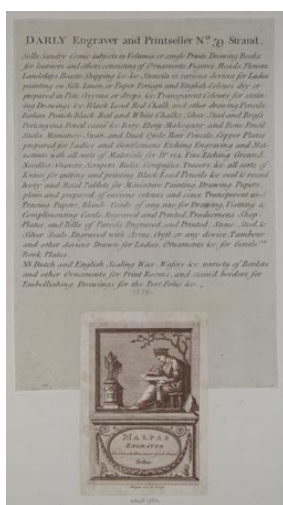 DARLY Engraver and Printseller No. 39 Strand.
Sells Sundry Comic subjects in Volumes or single Prints, Drawing Books
for learners and others consisting of Ornaments, Figures, Heads, Flowers,
Landskips, Beasts, Shipping &c. &c. Stencils in various devices for Ladies
painting on Silk, Linen, or Paper, Foreign and English Colours dry or
prepared in Pots, Crayons, or drops, &c. Transparent Colours for stain-
ing Drawings &c. Black Lead, Red Chalk, and other drawing Pencils,
Italian, French Black, Red and White Chalks, Silver, Steel and Brass
Portcrayons, Pencil cases &c. Ivory, Ebony, Mahogany and Bone Pencil
Sticks, Miniature, Swan, and Duck Quill Hair Pencils, Copper Plates
prepared for Ladies and Gentlemens Etching Engraving and Met-
zotinto with all sorts of Materials for
Needles, Gravers, Scrapers, Rules, Compasses, Tracers, &c. all sorts of
Knives for cutting and pointing Black Lead Pencils &c.
Ivory and Tablets for Miniature Painting, Drawing Papers
plain and prepared of various colours and sizes, Transparent and
Tracing Papers, Blank Cards of any size for Drawing, Visiting &
Complimenting Cards Engraved and Printed, Tradesmens Shop-
Plates, and Bills of Parcels Engraved and Printed, Stone, Steel, &
Silver Seals Engraved with Arms, or any device, Tambour
and other devices Drawn for Ladies, Ornaments &c. for
Book Plates.
NB. Dutch and English Sealing Wax, Wafers &c. variety of Borders
and other Ornaments for Print Rooms, and stain'd borders for
Embellishing Drawings for the Port-Folio &c.
MALPAS
ENGRAVER
Soho